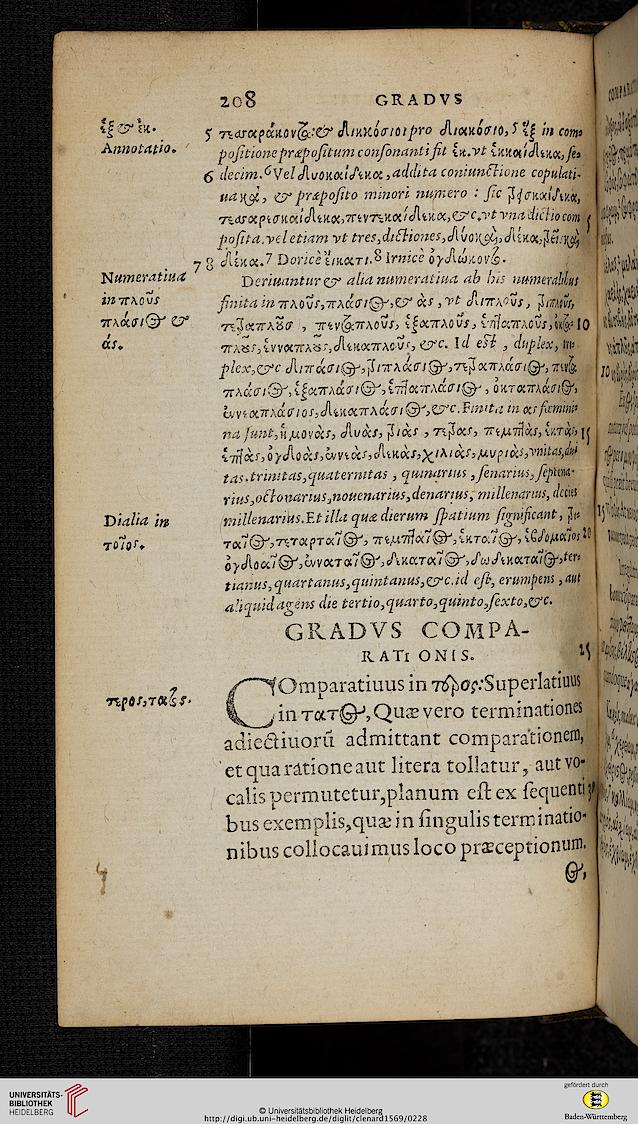 208 GRADVS
ἐξ & ἐκ.
Annotatio.
5 τεσσαράκοντα: & διηκόσιοι pro διακόσιοι, 5 ἐξ in com-
positione præpositum consonanti fit ἐκ. vt ἑκκαίδεκα, se-
6 decim. 6 Vel δυοκαίδεκα, addita coniunctione copulati-
ua καὶ, & præposito minori numero : sic τρισκαίδεκα,
τεσσαρεσκαίδεκα, πεντεκαίδεκα, &c, vt vna dictio com
posita. vel etiam vt tres, dictiones, δύο καὶ δέκα, τρεῖς καὶ
7 8 δέκα. 7 Doricè εἴκατι. 8 Irnicè ὀγδώκοντα.
Numeratiua
in πλοῦς
πλάσιος &
άς.
Deriuantur & alia numeratiua ab his numeralibus
finita in πλοῦς, πλάσιος, & ὰς, vt διπλοῦς, τριπλοῦς,
τετραπλοῦς, πενταπλοῦς, ἑξαπλοῦς, ἑπταπλοῦς, ὀκτα- 10
πλοῦς, ἐνναπλοῦς, δεκαπλοῦς, &c. Id est, duplex, tri-
plex, &c διπλάσιος, τριπλάσιος, τετραπλάσιος, πεντα
πλάσιος, ἑξαπλάσιος, ἑπταπλάσιος, ὀκταπλάσιος,
ἐννεαπλάσιος, δεκαπλάσιος, &c. Finita in ας fœmini-
na sunt, ἡ μονὰς, δυὰς, τριὰς, τετρὰς, πεμπτὰς, ἑκτὰς, 15
ἑπτὰς, ὀγδοὰς, ἐννεὰς, δεκὰς, χιλιὰς, μυριὰς, vnitas, dui
tas. trinitas, quaternitas, quinarius, senarius, septena-
rius, octonarius, nouenarius, denarius, millenarius, decies
Dialia in
τοῖος.
millenarius. Et illa quæ dierum spatium significant, τρι-
ταῖος, τεταρταῖος, πεμπταῖος, ἑκταῖος, ἑβδομαῖος 20
ὀγδοαῖος, ἐνναταῖος, δεκαταῖος, δωδεκαταῖος, ter-
tianus, quartanus, quintanus, &c. id est, erumpens, aut
aliquid agens die tertio, quarto, quinto, sexto, &c.
GRADVS COMPA-
RATIONIS. 25
τερος, τατος.
COmparatiuus in τερος: Superlatiuus
in τατος, Quæ vero terminationes
adiectiuorũ admittant comparationem,
et qua ratione aut litera tollatur, aut vo-
calis permutetur, planum est ex sequenti
bus exemplis, quæ in singulis terminatio-
nibus collocauimus loco præceptionum.
ος,
UNIVERSITÄTS-
BIBLIOTHEK
HEIDELBERG
© Universitätsbibliothek Heidelberg
http://digi.ub.uni-heidelberg.de/diglit/clenard1569/0228
gefördert durch
Baden-Württemberg